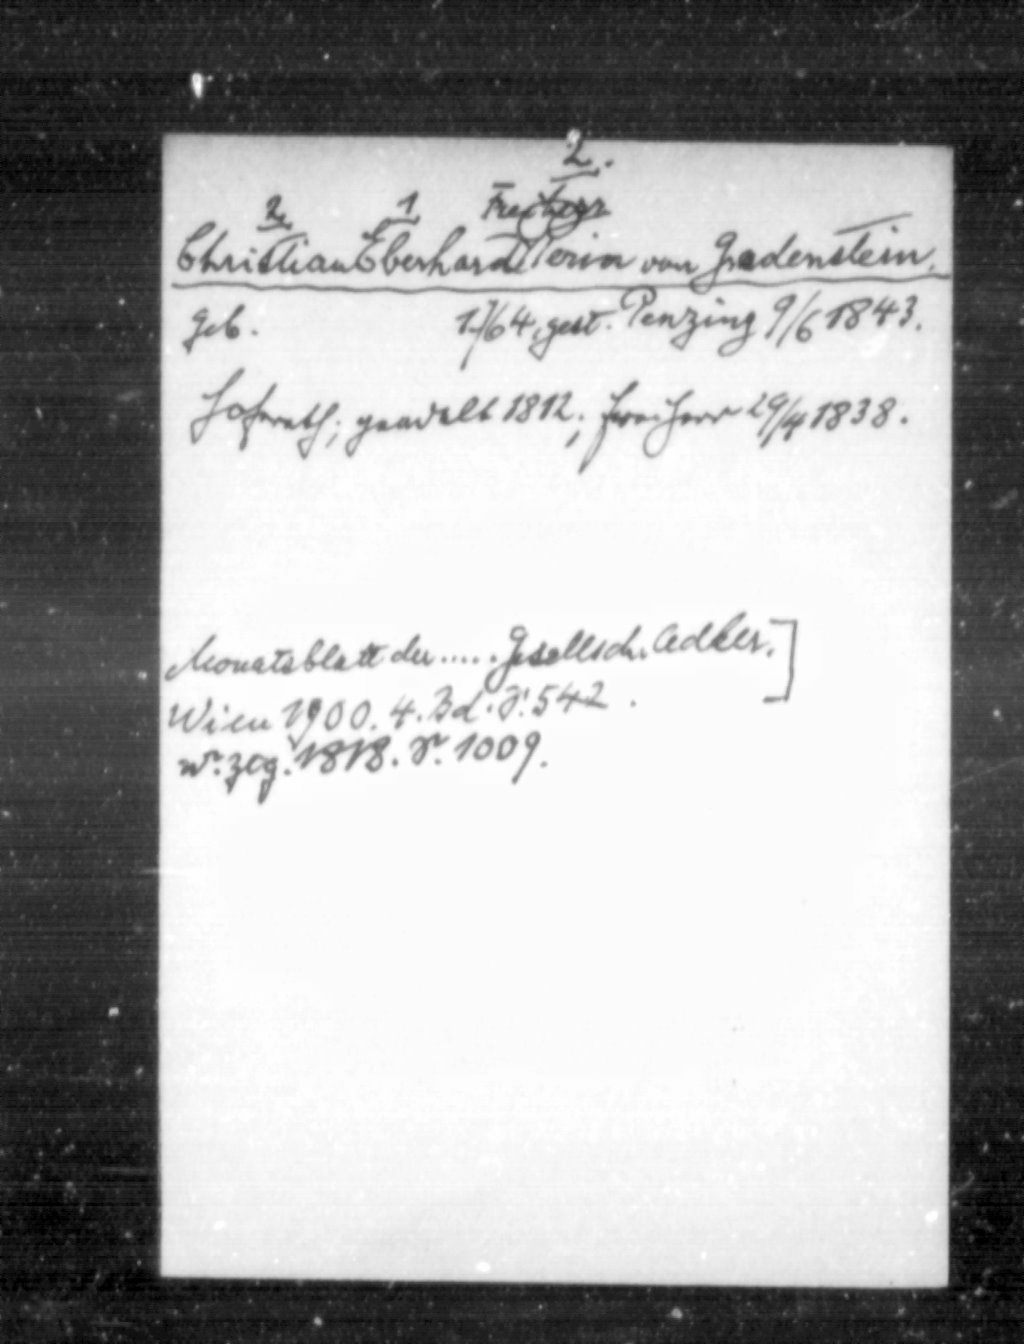 2.
2 1 Freiherr
Christian Eberhard Perin von Gradenstein.
geb. 1764, gest. Penzing 9/6 1843.
Hofrath; geadelt 1812; Freiherr 29/4 1838.
Monatsblatt der ..... Gesellsch. Adler.]
Wien 1900. 4. Bd. S. 542.
Wr. Ztg. 1818. S. 1009.